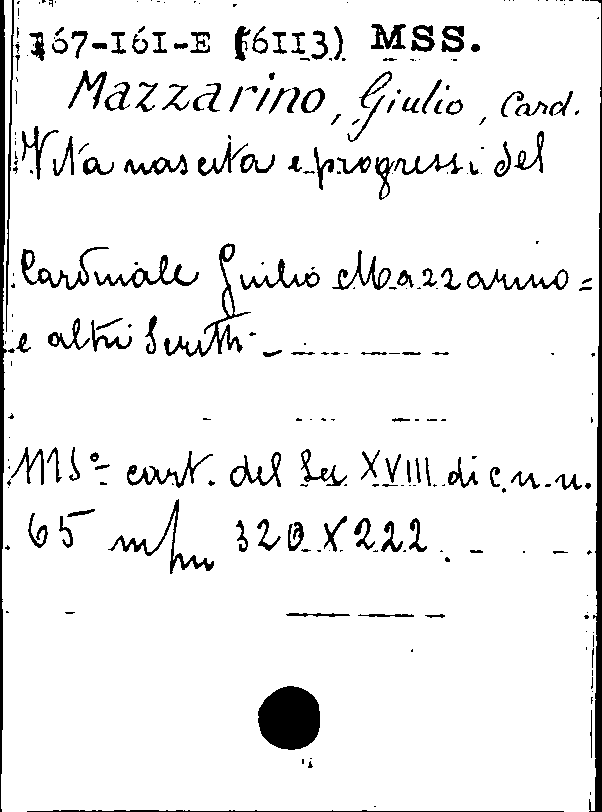 167-161-E (6113) MSS.
Mazzarino, Giulio, Card.
Vita nascita e progressi del
Cardinale Giulio Mazzarino =
e altri Scritti -
MSº- cart. del Sec XVIII di c. n. n.
65 m/m 320 X 222.